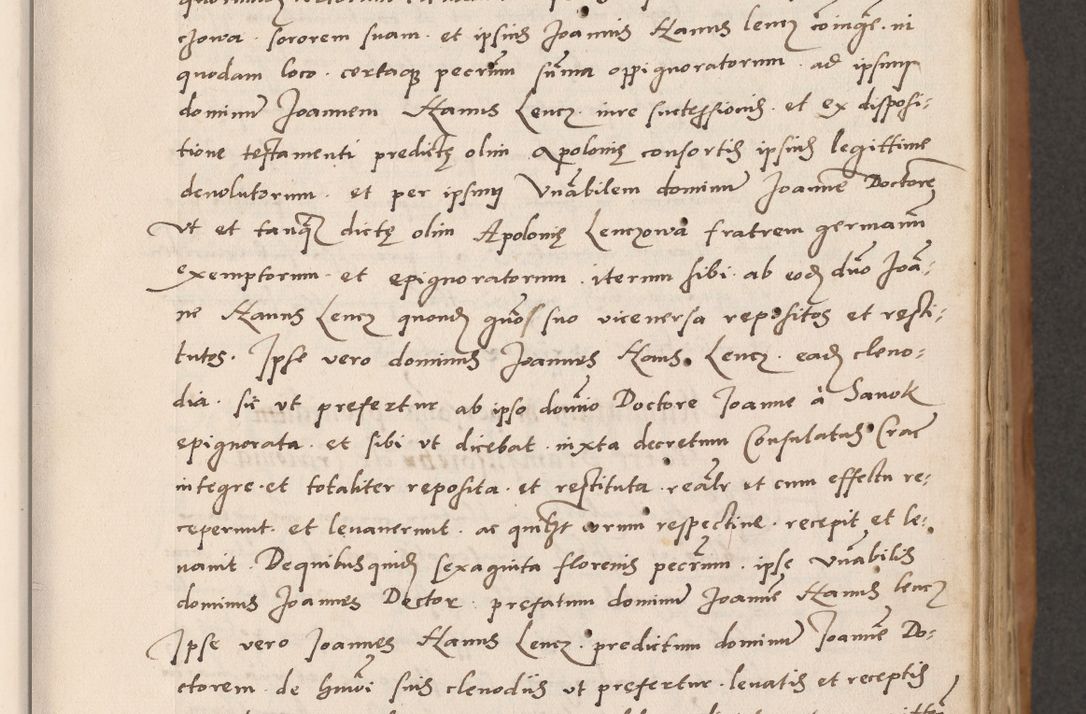 czowa . sororem suam . et ipsius Joannis Hanus Lencz coniuge . in
quodam loco . certaque pecunia summa oppignoratorum . ad ipsum
dominum Joannem Hanus Lencz . iure successionis . et ex disposi-
tione testamenti predictę olim Apolonię consortis ipsius legittime
devolutorum . et per ipsum Venerabilem dominum Joannem Doctorem
ut et tanquam dictę olim Apolonię Lenczowa fratrem germanum
exemptorum . et epignoratorum . iterum sibi . ab eodem domino Joan-
ne Hanus Lencz quondam suo viceversa repositos et resti-
tutos . Ipse vero dominus Joannes Hanus Lencz . eadem cleno-
dia . sic ut prefertur ab ipso domino Doctore Joanne à Sanok
epignorata . et sibi ut dicebat . iuxta decretum Consulatus Crac
integre . et totaliter reposita . et restituta . realiter ut cum effectu re-
ceperunt . et levaverunt . ac quilibet eorum respective . recepit et le-
vavit . De quibus quidem sexaginta florenis pecuniarum . ipse Venerabilis
dominus Joannes Doctor . prefatum dominum Joannem Hanus Lencz
Ipse vero Joannes Hanus Lencz . predictum dominum Joannem Do-
ctorem . de huiusmodi suis clenodiis ut prefertur . levatis et receptis